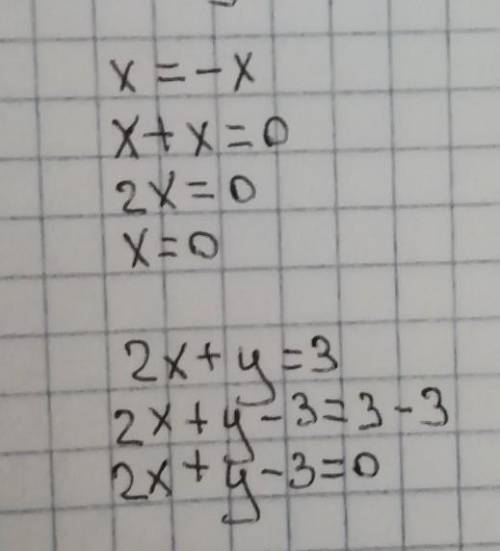 x = -x
x + x = 0
2x = 0
x = 0
2x + y = 3
2x + y - 3 = 3 - 3
2x + y - 3 = 0